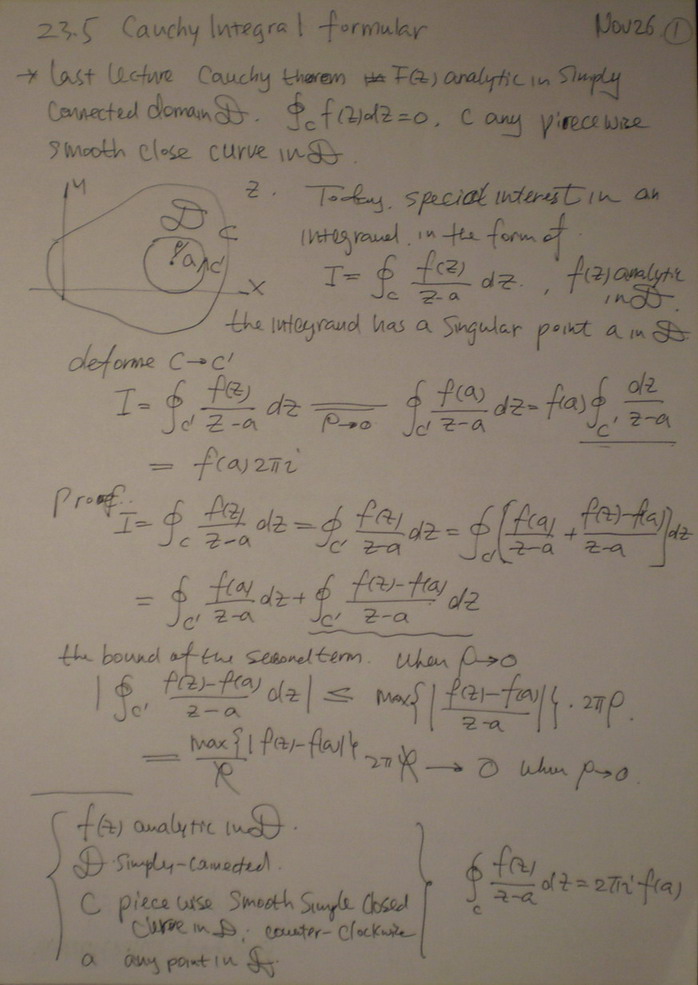 23.5 Cauchy Integral formular Nov 26 ①
→ Last lecture Cauchy theorem F(z) analytic in simply
connected domain D. ∮_C f(z)dz=0. C any piecewise
smooth close curve in D.
y
z. Today, special interest in an
D C
integrand, in the form of.
a ρ C' x
I = ∮_C f(z)/(z-a) dz. , f(z) analytic
in D.
the integrand has a singular point a in D
deforme C→C'
I = ∮_C' f(z)/(z-a) dz =(ρ→0) ∮_C' f(a)/(z-a) dz = f(a) ∮_C' dz/(z-a)
= f(a) 2πi
Proof.
I = ∮_C f(z)/(z-a) dz = ∮_C' f(z)/(z-a) dz = ∮_C' [f(a)/(z-a) + (f(z)-f(a))/(z-a)] dz
= ∮_C' f(a)/(z-a) dz + ∮_C' (f(z)-f(a))/(z-a) dz
the bound of the second term. when ρ→0
|∮_C' (f(z)-f(a))/(z-a) dz| ≤ max{|(f(z)-f(a))/(z-a)|} · 2πρ.
= max{|f(z)-f(a)|}/ρ 2πρ → 0 when ρ→0.
f(z) analytic in D.
D simply-connected.
∮_C f(z)/(z-a) dz = 2πi f(a)
C piecewise smooth simple closed
curve in D, counter-clockwise
a any point in D.